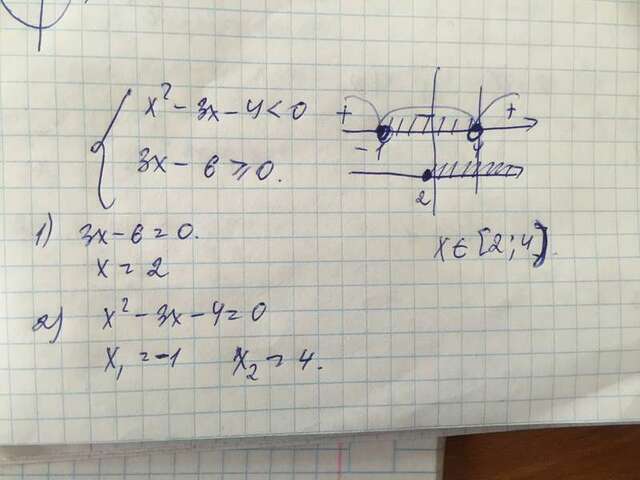 x² - 3x - 4 < 0
3x - 6 ⩾ 0.
1) 3x - 6 = 0.
x = 2
2) x² - 3x - 4 = 0
x₁ = -1 x₂ = 4.
+ - +
-1 4
2
x ∈ [2; 4).